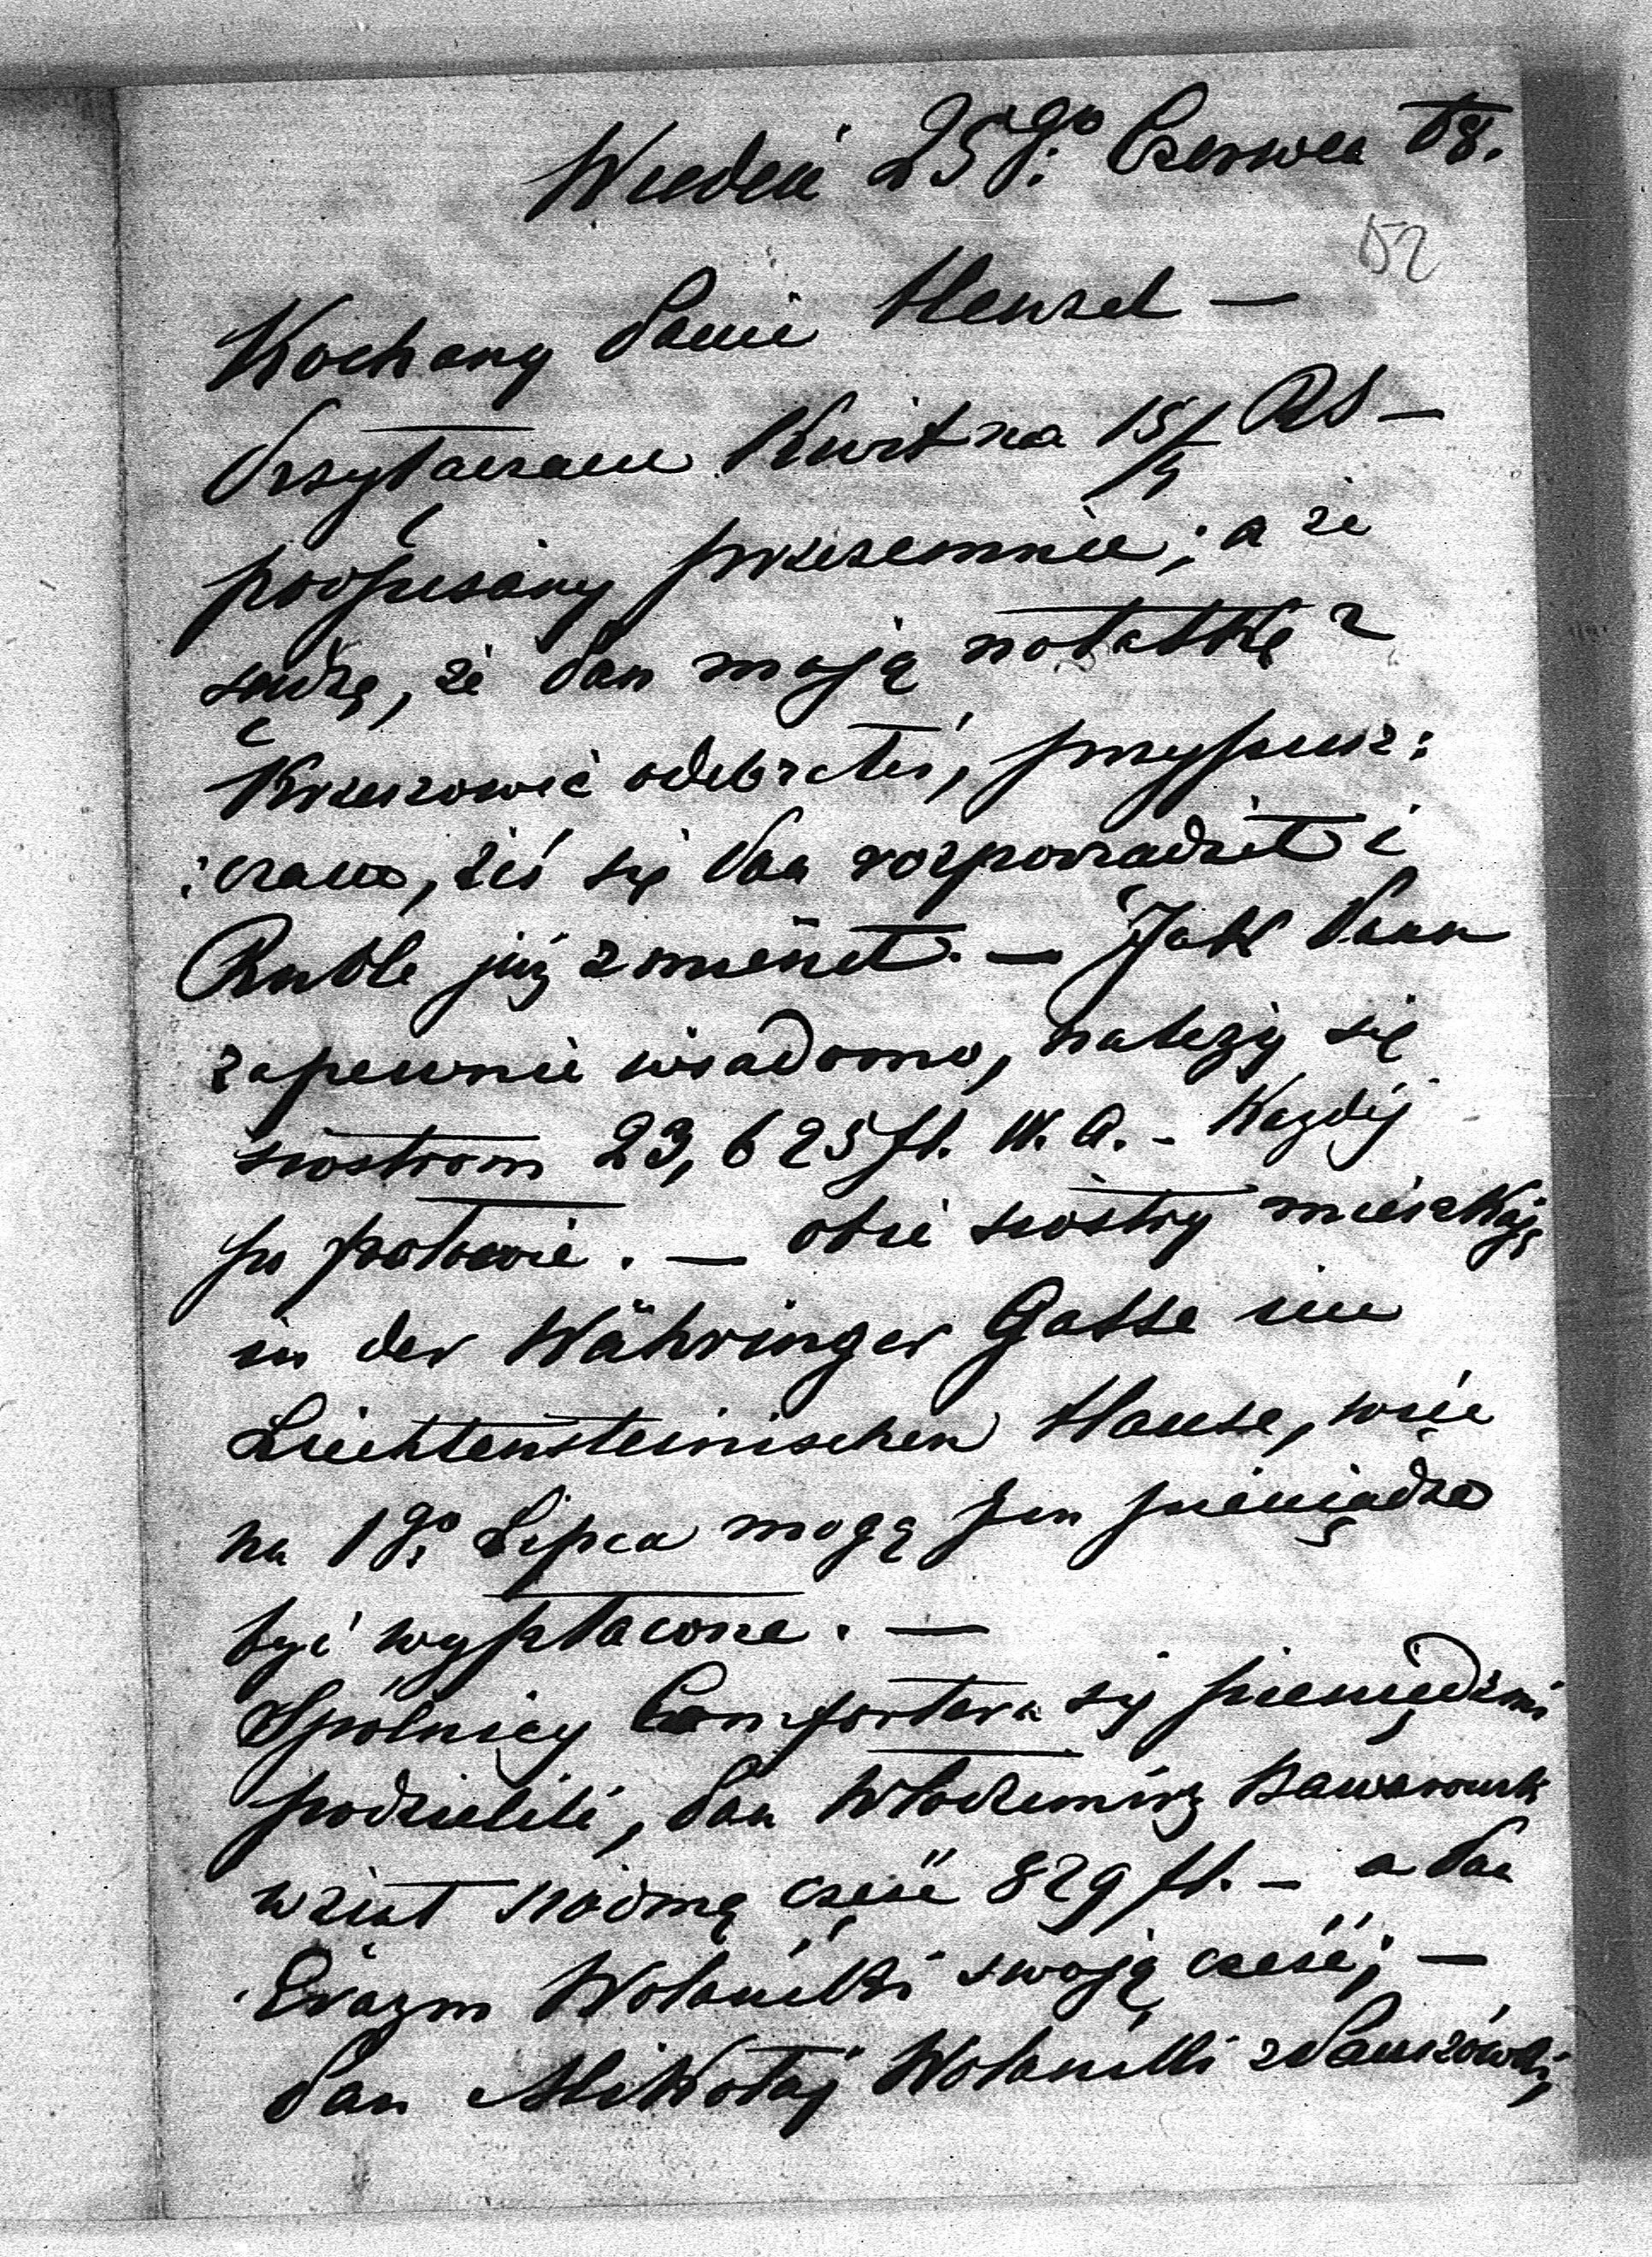 Wiedeń 25go: Czerwca 68.
152
Kochany Panie Hensel —
Przyłaczam Kwit na 15/4 RS —
podpisány przezemnie; a że
sądzę, że Pan moją notatkę z
Krzeszowic odebrałeś, przypusz:
:czam, żeś się Pan rozporządził i
Ruble już zmienił. — Jak Panu
zapewnie wiadomo, należy się
siostrom 23,625 fl. W. A. - Każdéj
po połowie. — obie siostry mieszkają
in der Währinger Gasse im
Liechtensteinischen Hause, więc
na 1go: Lipca mogą Jm pieniądze
być wypłacone. —
Spólnicy Comfortera się pieniędzmi
podzielili, Pan Włodzimirz Baworowski
wziął siódmą część 829 fl. — a Pan
Erazm Wolański swoją cześć; —
Pan Mikołaj Wolański z Pauszówki,